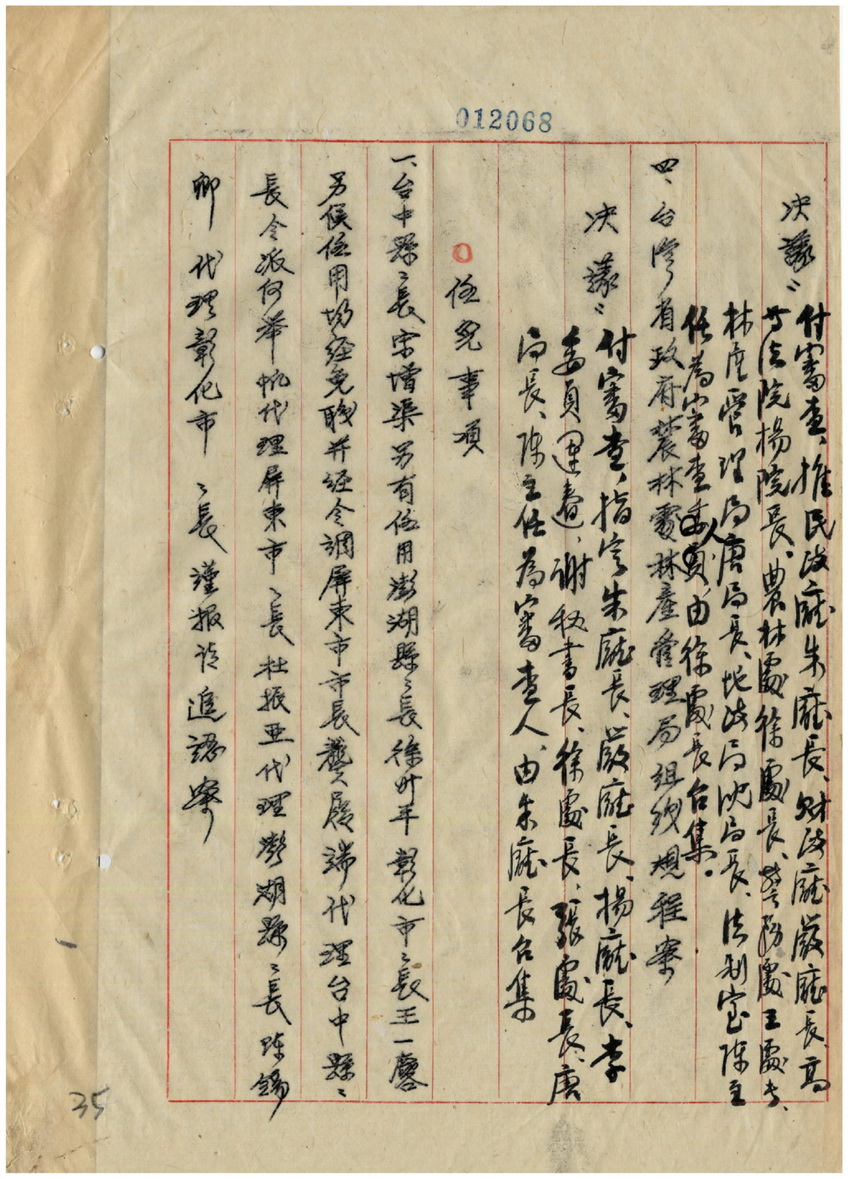 012068
決議：付審查，推民政廳朱廳長、財政廳嚴廳長、高
等法院楊院長、農林處徐處長、警務處王處長、
林產管理局唐局長、地政局沈局長、法制室陳主
任為審查人，由徐處長召集。
四、台灣省政府農林處林產管理局組織規程案
決議：付審查，指定朱廳長、嚴廳長、楊廳長、李
委員連春、謝秘書長、徐處長、張處長、唐
局長、陳主任為審查人，由朱廳長召集
任免事項
一、台中縣縣長宋增榘另有任用澎湖縣縣長徐升平彰化市市長王一麐
另候任用均經免職并經令調屏東市市長龔履端代理台中縣縣
長令派何舉帆代理屏東市市長杜振亞代理澎湖縣縣長陳錫
卿代理彰化市市長謹報請追認案
35